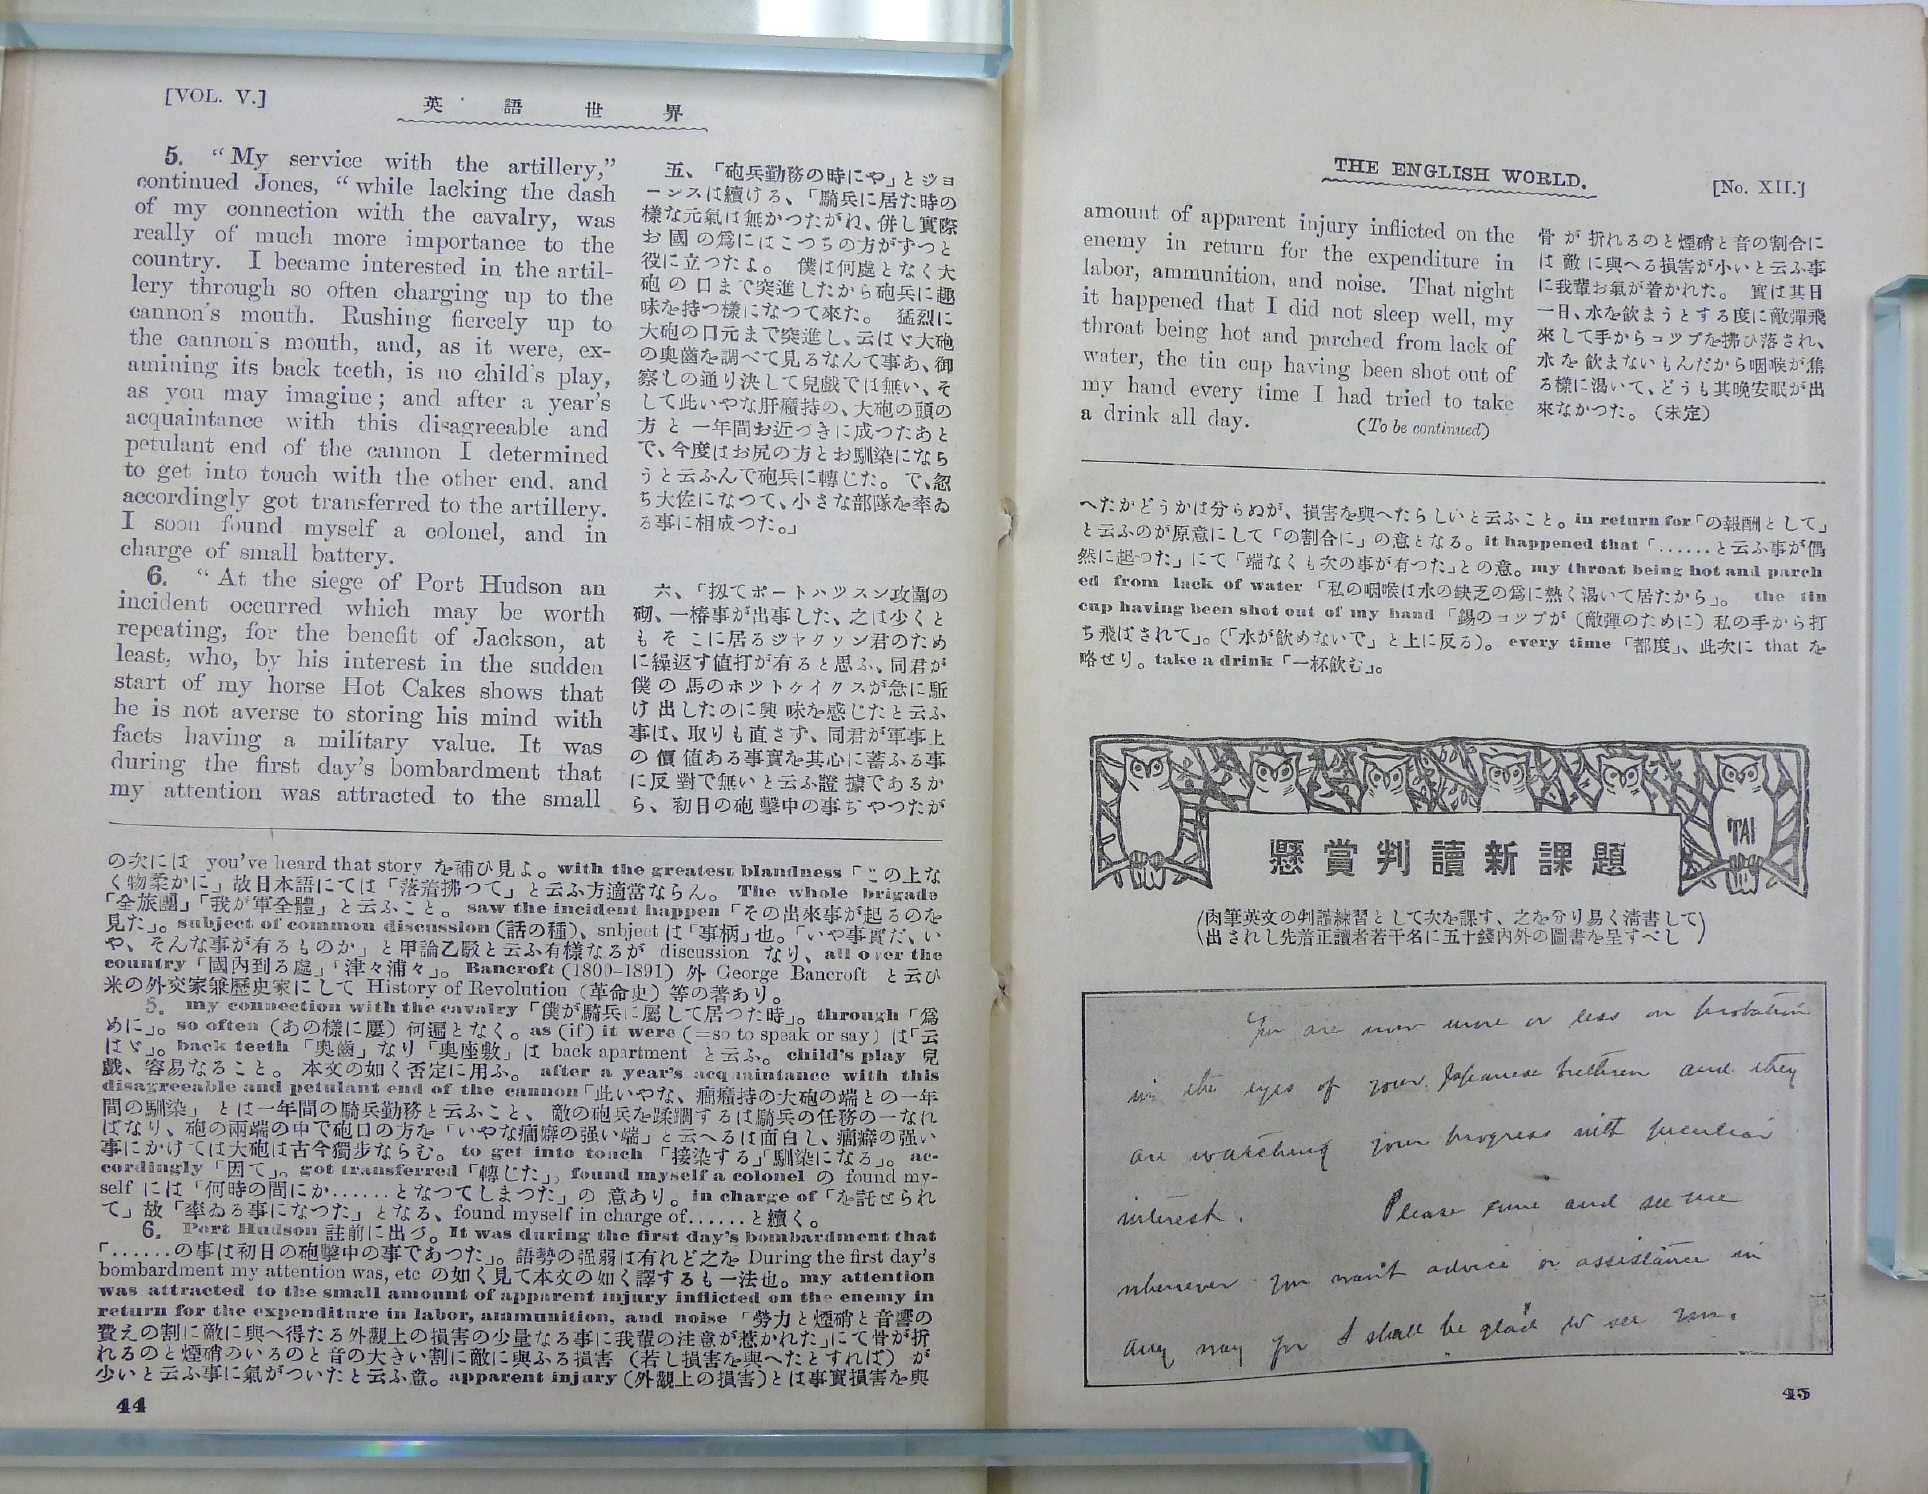 [VOL. V.]
英語世界
5. “My service with the artillery,”
continued Jones, “while lacking the dash
of my connection with the cavalry, was
really of much more importance to the
country. I became interested in the artil-
lery through so often charging up to the
cannon's mouth. Rushing fiercely up to
the cannon's mouth, and, as it were, ex-
amining its back teeth, is no child's play,
as you may imagine; and after a year's
acquaintance with this disagreeable and
petulant end of the cannon I determined
to get into touch with the other end, and
accordingly got transferred to the artillery.
I soon found myself a colonel, and in
charge of small battery.
6. “At the siege of Port Hudson an
incident occurred which may be worth
repeating, for the benefit of Jackson, at
least, who, by his interest in the sudden
start of my horse Hot Cakes shows that
he is not averse to storing his mind with
facts having a military value. It was
during the first day's bombardment that
my attention was attracted to the small
五、「砲兵勤務の時にや」とジョ
ーンスは續ける、「騎兵に居た時の
樣な元氣は無かつたがれ、併し實際
お國の爲にはこつちの方がずつと
役に立つたよ。 僕は何處となく大
砲の口まで突進したから砲兵に趣
味を持つ樣になつて來た。 猛烈に
大砲の口元まで突進し、云はゞ大砲
の奥齒を調べて見るなんて事あ、御
察しの通り決して兒戲では無い、そ
して此いやな肝癪持の、大砲の頭の
方と一年間お近つきに成つたあと
で、今度はお尻の方とお馴染になら
うと云ふんで砲兵に轉じた。で、忽
ち大佐になつて、小さな部隊を率ゐ
る事に相成つた。」
六、「扨てポートハツスン攻圍の
砌、一樁事が出事した、之は少くと
もそこに居るジヤクソン君のため
に繰返す値打が有ると思ふ、同君が
僕の馬のホツトケイクスが急に駈
け出したのに興味を感じたと云ふ
事は、取りも直さず、同君が軍事上
の價値ある事實を其心に蓄ふる事
に反對で無いと云ふ證據であるか
ら、初日の砲撃中の事ぢやつたが
の次には you've heard that story を補ひ見よ。with the greatest blandness「この上な
く物柔かに」故日本語にては「落着拂つて」と云ふ方適當ならん。The whole brigade
「全旅團」「我が軍全體」と云ふこと。saw the incident happen「その出來事が起るのを
見た」。subject of common discussion (話の種)、snbject は「事柄」也。「いや事實だ、い
や、そんな事が有るものか」と甲論乙駁と云ふ有樣なるが discussion なり、all over the
country「國內到る處」「津々浦々」。Bancroft (1800–1891) 外 George Bancroft と云ひ
米の外交家兼歷史家にして History of Revolution (革命史) 等の著あり。
5. my connection with the cavalry「僕が騎兵に屬して居つた時」。through「爲
めに」。so often (あの樣に屢) 何遍となく。as (if) it were (=so to speak or say) は「云
はゞ」。back teeth「奥齒」なり「奥座敷」は back apartment と云ふ。child's play 兒
戲、容易なること。 本文の如く否定に用ふ。 after a year's acquaintance with this
disagreeable and petulant end of the cannon「此いやな、癇癪持の大砲の端との一年
間の馴染」 とは一年間の騎兵勤務と云ふこと、 敵の砲兵を蹂躙するは騎兵の任務の一なれ
ばなり、砲の兩端の中で砲口の方を「いやな癇癖の强い端」と云へるは面白し、癇癖の强い
事にかけては大砲は古今獨步ならむ。to get into touch「接染する」「馴染になる」。ac-
cordingly「因て」。got transferred「轉じた」、found myself a colonel の found my-
self には「何時の間にか……となつてしまつた」の 意あり。in charge of「を託せられ
て」故「率ゐる事になつた」となる、found myself in charge of……と續く。
6. Port Hudson 註前に出づ。It was during the first day's bombardment that
「……の事は初日の砲撃中の事であつた」。語勢の强弱は有れど之を During the first day's
bombardment my attention was, etc の如く見て本文の如く譯するも一法也。my attention
was attracted to the small amount of apparent injury inflicted on the enemy in
return for the expenditure in labor, ammunition, and noise「勞力と煙硝と音響の
費えの割に敵に與へ得たる外觀上の損害の少量なる事に我輩の注意が惹かれた」にて骨が折
れるのと煙硝のいるのと音の大きい割に敵に與ふる損害 (若し損害を與へたとすれば) が
少いと云ふ事に氣がついたと云ふ意。apparent injury (外觀上の損害)とは事實損害を與
44
THE ENGLISH WORLD.
[No. XII.]
amount of apparent injury inflicted on the
enemy in return for the expenditure in
labor, ammunition, and noise. That night
it happened that I did not sleep well, my
throat being hot and parched from lack of
water, the tin cup having been shot out of
my hand every time I had tried to take
a drink all day.
(To be continued)
骨が折れるのと煙硝と音の割合に
は敵に與へる損害が小いと云ふ事
に我輩お氣が着かれた。 實は其日
一日、水を飲まうとする度に敵彈飛
來して手からコツプを拂ひ落され、
水を飲まないもんだから咽喉が焦
る樣に渴いて、どうも其晚安眠が出
來なかつた。(未定)
へたかどうかは分らぬが、損害を與へたらしいと云ふこと。in return for「の報酬として」
と云ふのが原意にして「の割合に」の意となる。it happened that「……と云ふ事が偶
然に起つた」にて「端なくも次の事が有つた」との意。my throat being hot and parch
ed from lack of water「私の咽喉は水の缺乏の爲に熱く渴いて居たから」。 the tin
cup having been shot out of my hand「錫のコツプが (敵彈のために) 私の手から打
ち飛ばされて」。(「水が飲めないで」と上に反る)。every time「都度」、此次に that を
略せり。take a drink「一杯飲む」。
TAI
懸賞判讀新課題
(肉筆英文の判讀練習として次を課す、之を分り易く淸書して
出されし先着正讀者若干名に五十錢內外の圖書を呈すべし)
You are now more or less on probation
in the eyes of your Japanese brethren and they
are watching your progress with peculiar
interest. Please come and see me
whenever you want advice or assistance in
any way for I shall be glad to see you.
45